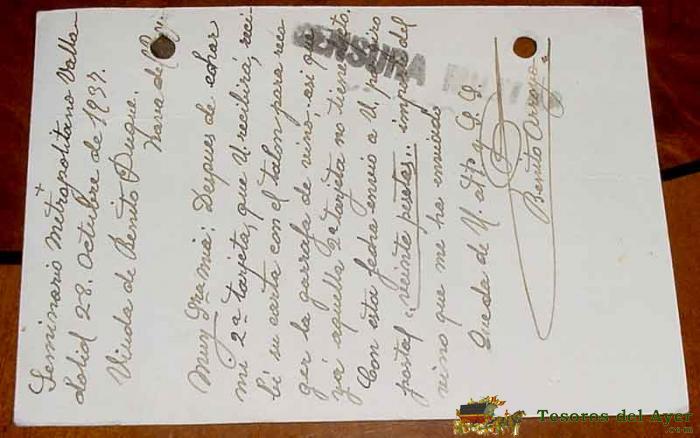 Seminario Metropolitano Valla-
dolid 28. Octubre de 1937.
Viuda de Benito Duque.
Nava del
Muy Sra mia: Despues de echar
mi 2ª tarjeta, que U. recibirá, reci-
bí su carta con el talon para reco
ger la garrafa de vino: así que
ya aquella 2ª tarjeta no tiene objeto.
Con esta fecha envio a U. por giro
postal "veinte pesetas", importe del
vino que me ha enviado
Queda de U. atto y S. S.
Benito Arroyo
CENSURA
Tesoros del Ayer
.com